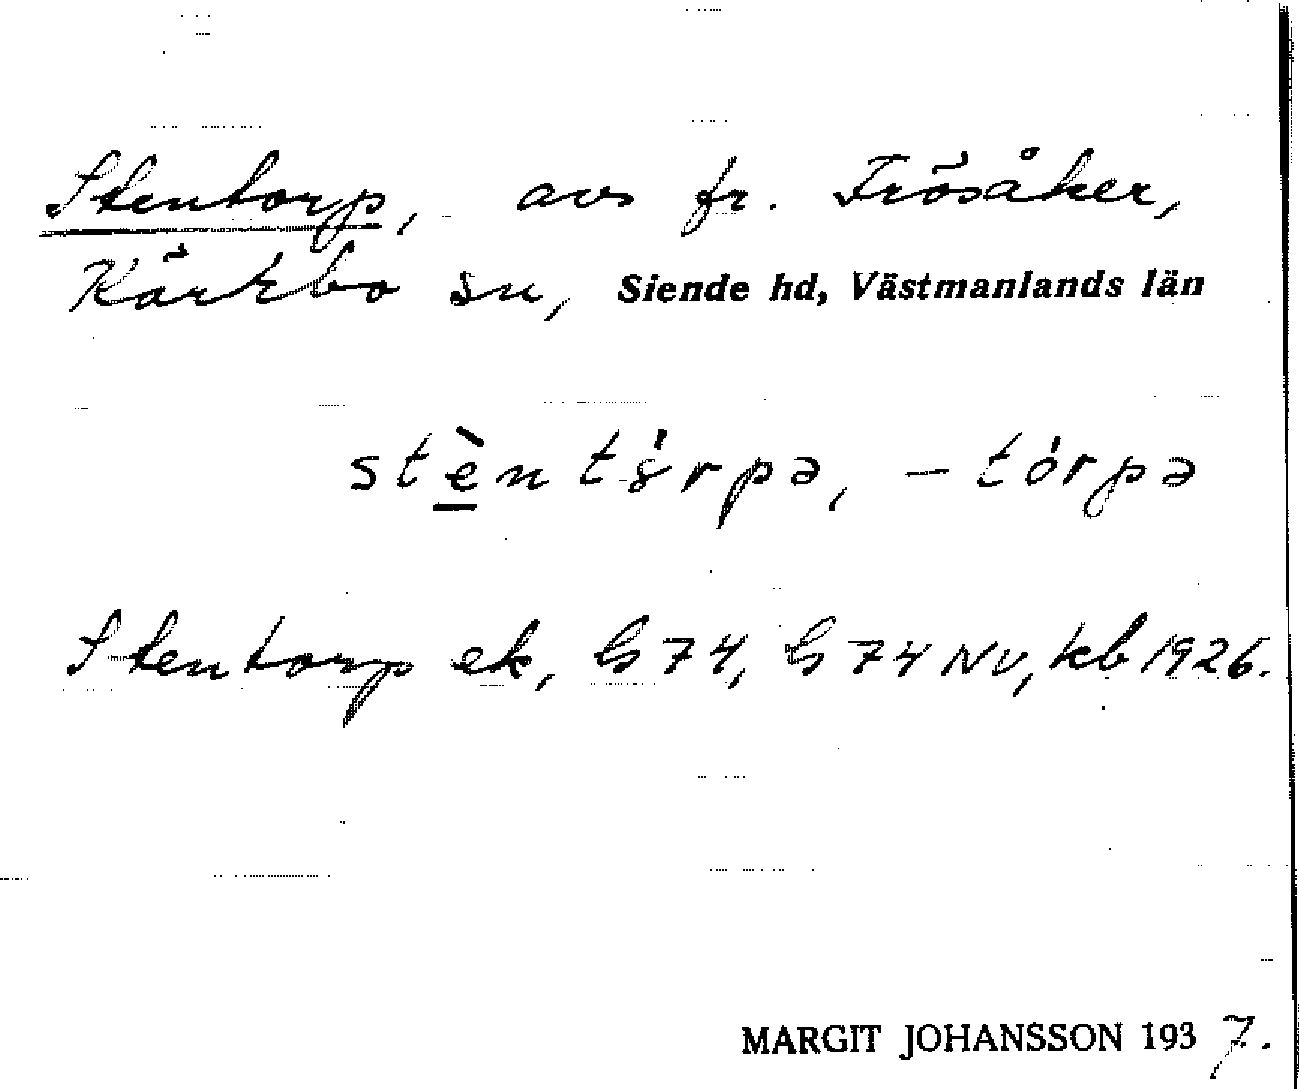 Stentorp, avs fr. Frösåker,
Kärrbo sn, Siende hd, Västmanlands län
stèntórpə, –tórpə
Stentorp ek, G 74, G 74 NV, kb 1926.
MARGIT JOHANSSON 1937.